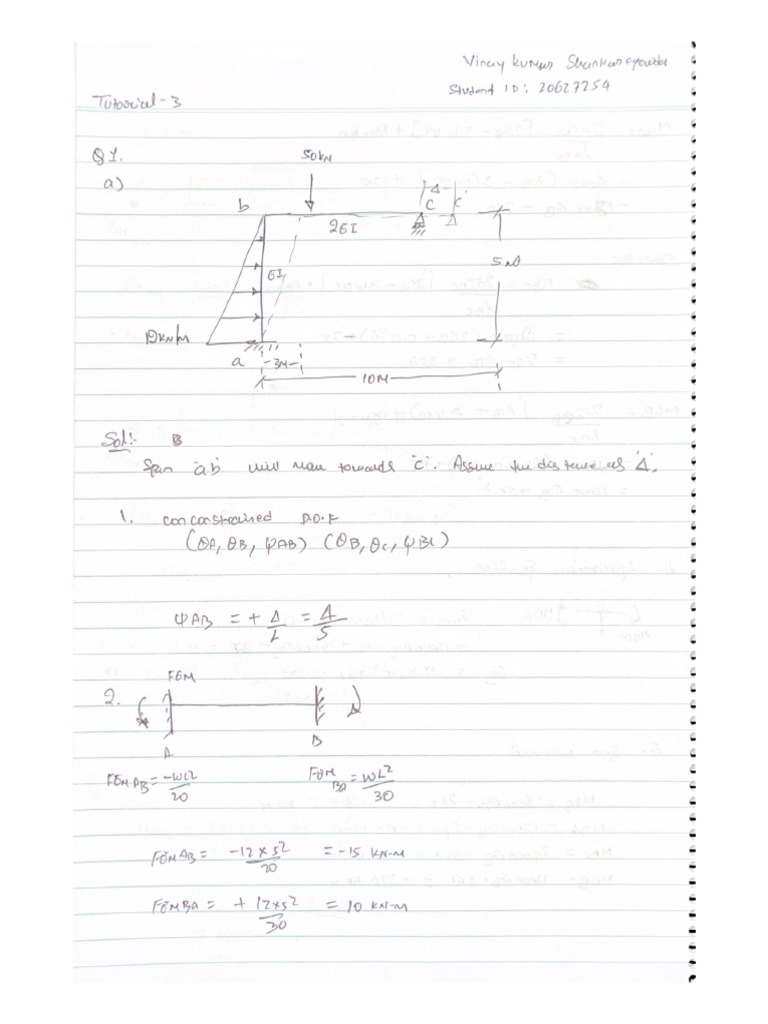 Vinay Kumar
Student ID: 20627254
Tutorial-3
Q1.
a)
50kN
Δ
b
C
C'
2EI
EI
5M
12kN/m
a
3M
10M
Sol:- B
Span 'ab' will move towards 'C'. Assume the distance as 'Δ'.
1. D.O.F
(θA, θB, ψAB) (θB, θC, ψBC)
ψAB = + Δ/L = Δ/5
FEM
2.
A
B
FEMAB = -WL²/20
FEM BA = WL²/30
FEMAB = -12×5²/20 = -15 KN-M
FEMBA = + 12×5²/30 = 10 KN-M